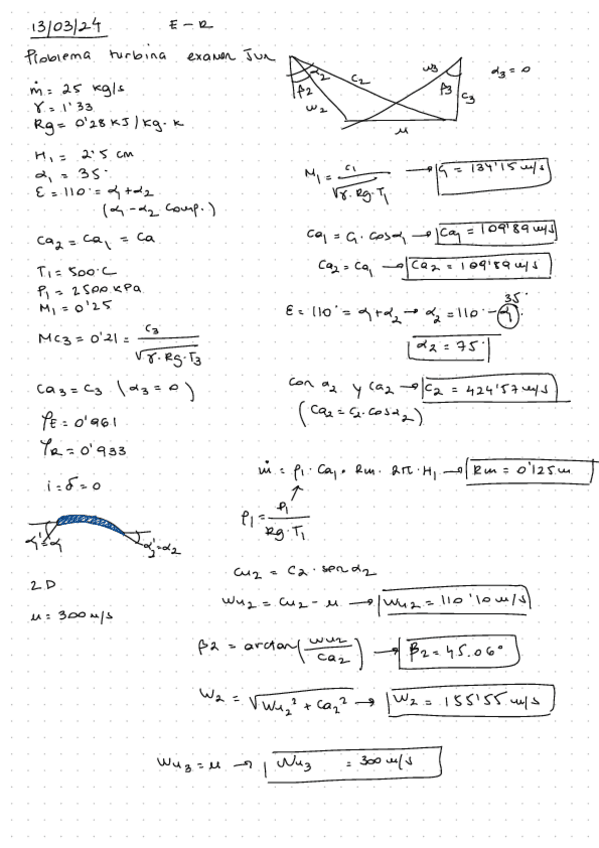 13/03/24 E-R
Problema turbina examen Jun
ṁ = 25 kg/s
γ = 1'33
Rg = 0'28 KJ/kg·K
H₁ = 2'5 cm
α₁ = 35°
ε = 110° = α₁ + α₂
(α₁ - α₂ comp.)
Ca₂ = Ca₁ = Ca
T₁ = 500°C
P₁ = 2500 kPa
M₁ = 0'25
MC₃ = 0'21 = C₃ / √γ·Rg·T₃
Ca₃ = C₃ (α₃ = 0)
φE = 0'961
φR = 0'933
i = δ = 0
α₁' = α₁ α₂' = α₂
2D
u = 300 m/s
α₂ β₂ w₂ C₂ w₃ β₃ C₃ u
α₃ = 0
M₁ = C₁ / √γ·Rg·T₁ → C₁ = 134'15 m/s
Ca₁ = C₁·cosα₁ → Ca₁ = 109'89 m/s
Ca₂ = Ca₁ → Ca₂ = 109'89 m/s
ε = 110° = α₁ + α₂ → α₂ = 110° - α₁ 35°
α₂ = 75°
Con α₂ y Ca₂ → C₂ = 424'57 m/s
(Ca₂ = C₂·cosα₂)
ṁ = ρ₁·Ca₁·Rm·2π·H₁ → Rm = 0'125 m
ρ₁ = P₁ / Rg·T₁
Cu₂ = C₂·senα₂
Wu₂ = Cu₂ - u → Wu₂ = 110'10 m/s
β₂ = arctan(Wu₂ / Ca₂) → β₂ = 45.06°
W₂ = √Wu₂² + Ca₂² → W₂ = 155'55 m/s
Wu₃ = u → Wu₃ = 300 m/s